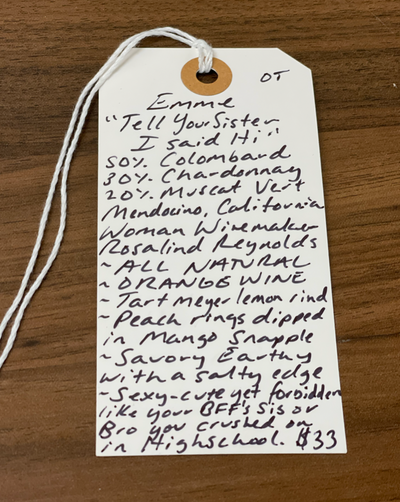 OT
Emme
"Tell Your Sister
I said Hi"
50% Colombard
30% Chardonnay
20% Muscat Vert
Mendocino, California
Woman Winemaker
Rosalind Reynolds
~ ALL NATURAL
~ ORANGE WINE
~ Tart meyer lemon rind
~ Peach rings dipped
in Mango Snapple
~ Savory Earthy
with a salty edge
~ Sexy-cute yet forbidden
like your BFF's Sis or
Bro you crushed on
in Highschool. $33